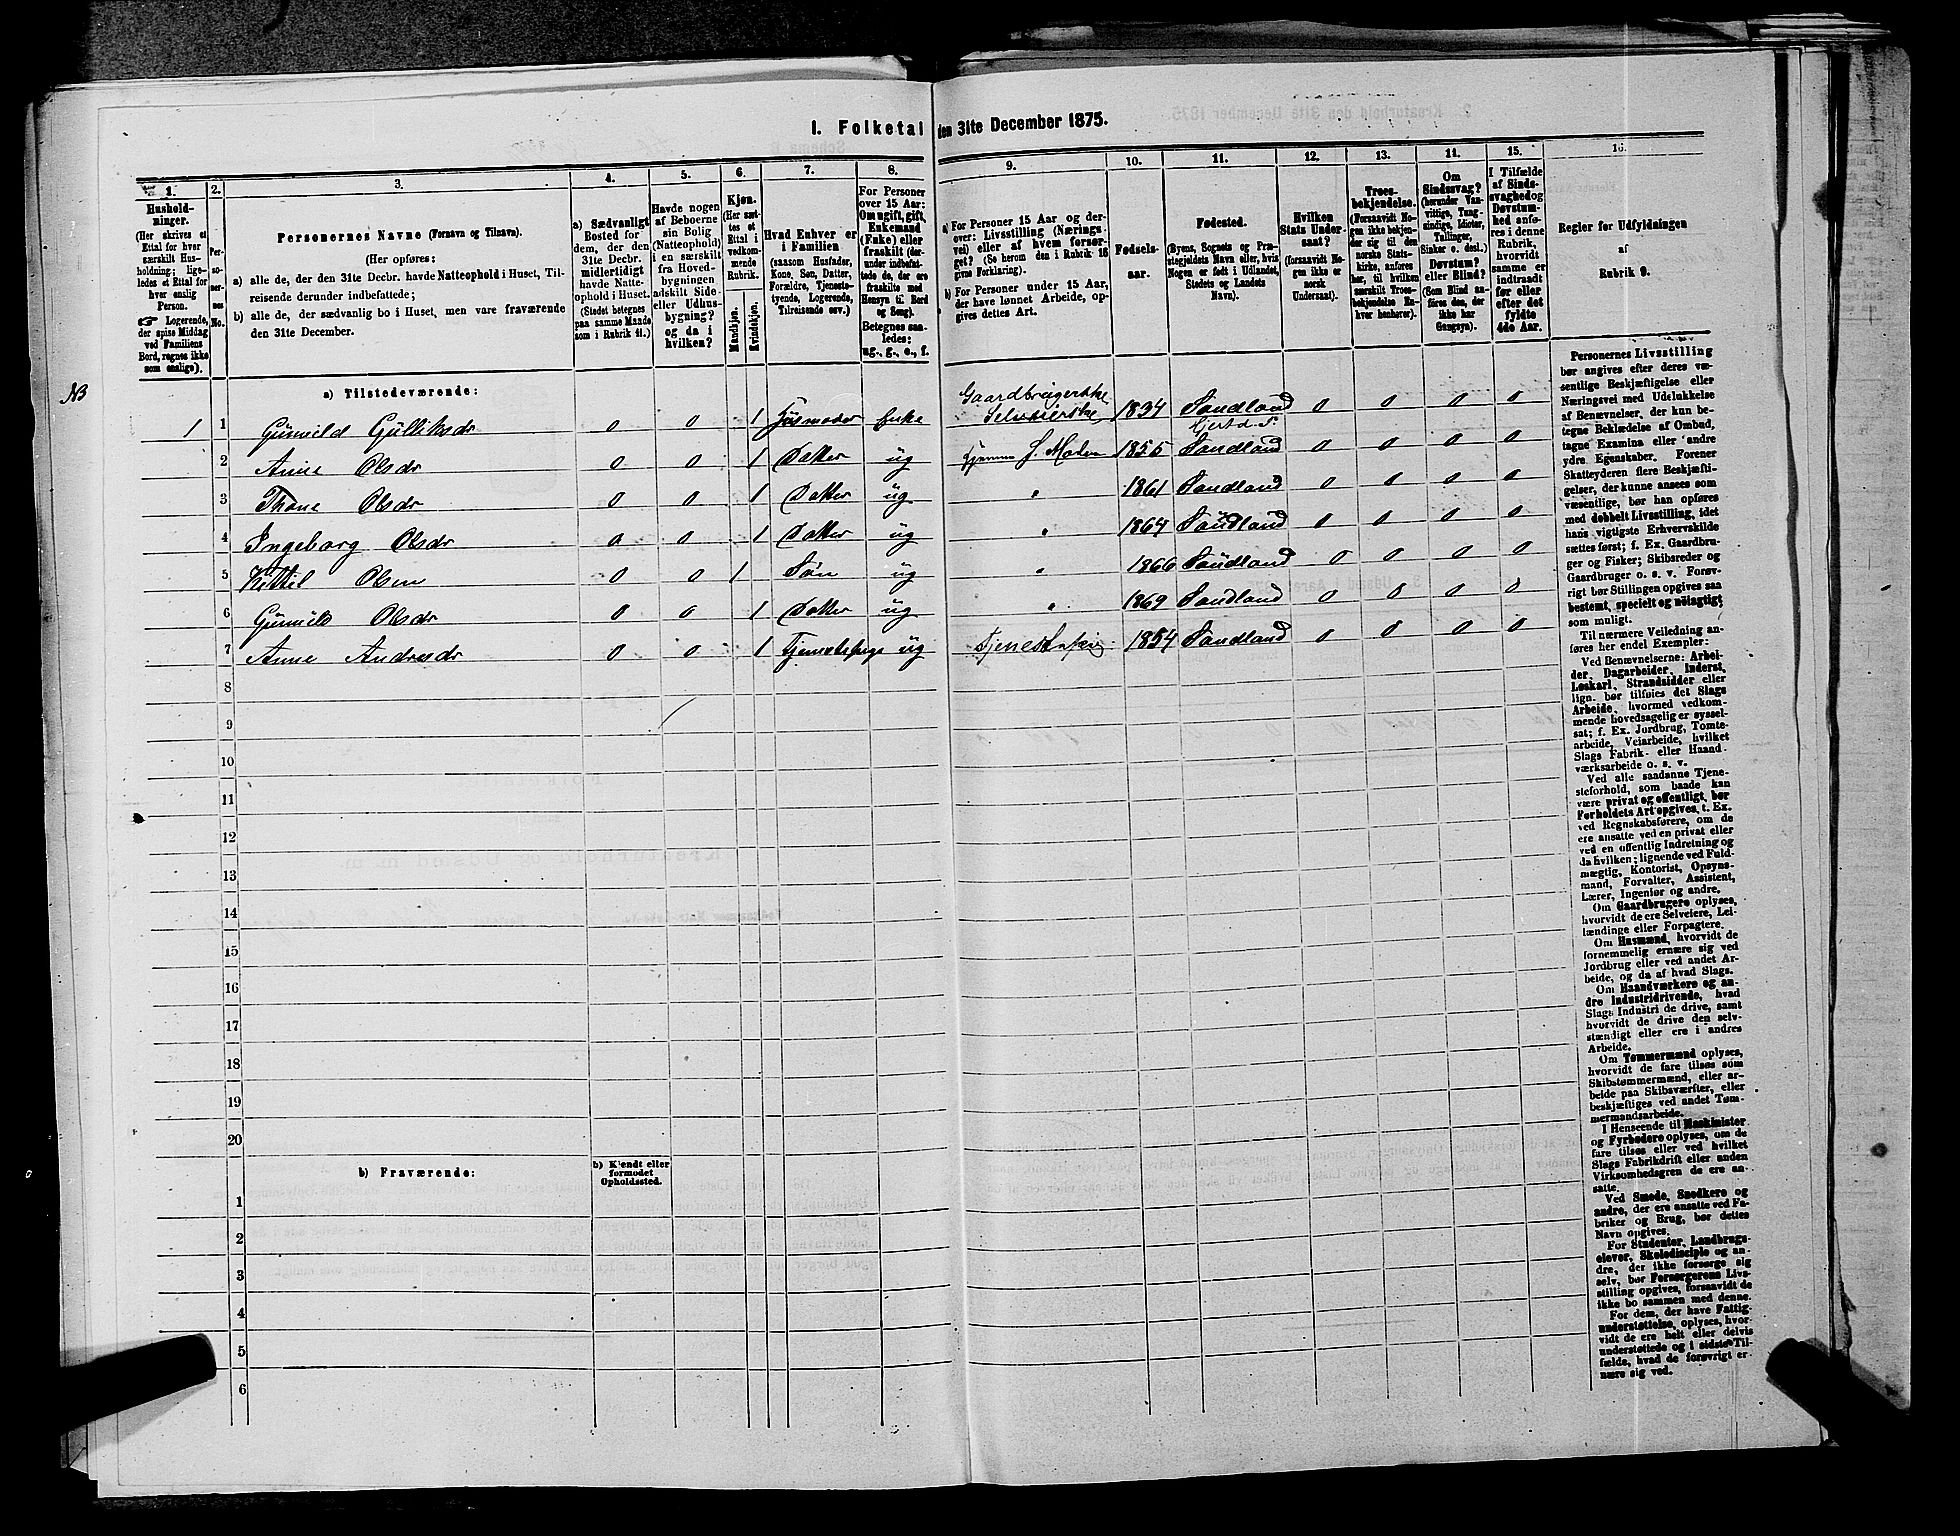 1. Folketal
den 31te December 1875.
1.
2.
3.
4.
5.
6.
7.
8.
9.
10.
11.
12.
13.
14.
15.
16.
Hushold-
ninger.
(Her skrives et
Ettal for hver
særskilt Hus-
holdning; lige-
ledes et Ettal for
hver enslig
Person.
☞ Logerende,
der spise Middag
ved Familiens
Bord, regnes ikke
som enslige).
Per-
so-
ner-
nes
No.
Personernes Navne (Fornavn og Tilnavn).
(Her opføres:
a) alle de, der den 31te Decbr. havde Natteophold i Huset, Til-
reisende derunder indbefattede;
b) alle de, der sædvanlig bo i Huset, men vare fraværende
den 31te December.
a) Sædvanligt
Bosted for
dem, der den
31te Decbr.
midlertidigt
havde Natte-
ophold i Huset.
(Stedet betegnes
paa samme Maade
som i Rubrik 11.)
Havde nogen
af Beboerne
sin Bolig
(Natteophold)
i en særskilt
fra Hoved-
bygningen
adskilt Side-
eller Udhus-
bygning?
og da i
hvilken?
Kjøn.
(Her sæt-
tes et
Ettal i
vedkom-
mende
Rubrik.
Mandkjøn.
Kvindekjøn.
Hvad Enhver er
i Familien
(saasom Husfader,
Kone, Søn, Datter,
Forældre, Tjeneste-
tyende, Logerende,
Tilreisende osv.)
For Personer
over 15 Aar:
Om ugift, gift,
Enkemand
(Enke) eller
fraskilt (der-
under indbefat-
tede de, der ere
fraskilte med
Hensyn til Bord
og Seng).
Betegnes saa-
ledes:
ug., g., e., f.
a) For Personer 15 Aar og der-
over: Livsstilling (Nærings-
vei) eller af hvem forsør-
get? (Se herom den i Rubrik 16
givne Forklaring).
b) For Personer under 15 Aar,
der have lønnet Arbeide, op-
gives dettes Art.
Fødsels-
aar.
Fødested.
(Byens, Sognets og Præ-
stegjeldets Navn eller, hvis
Nogen er født i Udlandet,
Stedets og Landets
Navn).
Hvilken
Stats Under-
saat?
(forsaavidt No-
gen ikke er
norsk
Undersaat).
Troes-
bekjendelse.
(Forsaavidt No-
gen ikke bekjen-
der sig til den
norske Stats-
kirke, anføres
her, til hvilken
særskilt Troes-
bekjendelse En-
hver henhører).
Om
Sindssvag?
(herunder Van-
vittige, Tung-
sindige, Idioter,
Tullinger,
Sinker o. desl.)
Døvstum?
eller Blind?
(Som Blind an-
føres den, der
ikke har
Gangsyn).
I Tilfælde
af Sinds-
svaghed og
Døvstum-
hed anfø-
res i denne
Rubrik,
hvorvidt
samme er
indtraadt
før eller
efter det
fyldte
4de Aar.
Regler for Udfyldningen
af
Rubrik 9.
a) Tilstedeværende:
1 1 Gunild Gulliksdr 0 0 1 Husmoder Enke Gaardbrugerske
Selveierske 1834 Sandland
Hjertd. P. 0 0 0 0
2 Anne Olsdr 0 0 1 Datter ug Hjemme f. Moder 1855 Sandland 0 0 0 0
3 Thone Olsdr 0 0 1 Datter ug " 1861 Sandland 0 0 0 0
4 Ingeborg Olsdr 0 0 1 Datter ug " 1864 Sandland 0 0 0 0
5 Kittil Olsen 0 0 1 Søn ug " 1866 Sandland 0 0 0 0
6 Gunild Olsdr 0 0 1 Datter ug " 1869 Sandland 0 0 0 0
7 Anne Andresdr 0 0 1 ug 1854 Sandland 0 0 0 0
8
9
10
11
12
13
14
15
16
17
18
19
20
b) Fraværende:
b) Kjendt eller
formodet
Opholdssted.
1
2
3
4
5
6
Personernes Livsstilling
bør angives efter deres væ-
sentlige Beskjæftigelse eller
Næringsvei med Udelukkelse
af Benævnelser, der kun be-
tegne Beklædelse af Ombud,
tagne Examina eller andre
ydre Egenskaber. Forener
Skatteyderen flere Beskjæfti-
gelser, der kunne ansees som
væsentlige, bør han opføres
med dobbelt Livsstilling, idet
hans vigtigste Erhvervskilde
sættes først; f. Ex. Gaardbru-
ger og Fisker; Skibsreder og
Gaardbruger o. s. v. Forøv-
rigt bør Stillingen opgives saa
bestemt, specielt og nöiagtigt
som muligt.
Til nærmere Veiledning an-
føres her endel Exempler:
Ved Benævnelserne: Arbei-
der, Dagarbeider, Inderst,
Løskarl, Strandsidder eller
lign. bør tilføies det Slags
Arbeide, hvormed vedkom-
mende hovedsagelig er syssel-
sat; f. Ex. Jordbrug, Tomte-
arbeide, Veiarbeide, hvilket
Slags Fabrik- eller Haand-
værksarbeide o. s. v.
Ved alle saadanne Tjene-
steforhold, som baade kan
være privat og offentligt, bør
Forholdets Art opgives, t. Ex.
ved Regnskabsførere, om de
ere ansatte ved en privat eller
ved en offentlig Indretning og
da hvilken; lignende ved Fuld-
mægtig, Kontorist, Opsyns-
mand, Forvalter, Assistent,
Lærer, Ingeniør og andre.
Om Gaardbrugere oplyses,
hvorvidt de ere Selveiere, Lei-
lændinge eller Forpagtere.
Om Husmænd, hvorvidt de
fornemmelig ernære sig ved
Jordbrug eller ved andet Ar-
beide, og da af hvad Slags.
Om Haandværkere og an-
dre Industridrivende, hvad
Slags Industri de drive, samt
hvorvidt de drive den selv-
stændigt eller ere i andres
Arbeide.
Om Tømmermænd oplyses,
hvorvidt de fare tilsøs som
Skibstømmermænd, eller ar-
beide paa Skibsværfter, eller
beskjæftiges ved andet Tøm-
mermandsarbeide.
I Henseende til Maskinister
og Fyrbødere oplyses, om de
fare tilsøs eller ved hvilket
Slags Fabrikdrift eller anden
Virksomhedsgren de ere an-
satte.
Ved Smede, Snedkere og
andre, der ere ansatte ved Fa-
briker og Brug, bør dettes
Navn opgives.
For Studenter, Landbrugs-
elever, Skoledisciple og an-
dre, der ikke forsørge sig
selv, bør Forsørgerens Livs-
stilling opgives, forsaavidt de
ikke bo sammen med denne.
For dem, der have Fattig-
understøttelse, oplyses, hvor-
vidt de ere helt eller delvis
understøttede og i sidste Til-
fælde, hvad de forøvrigt er-
nære sig ved.